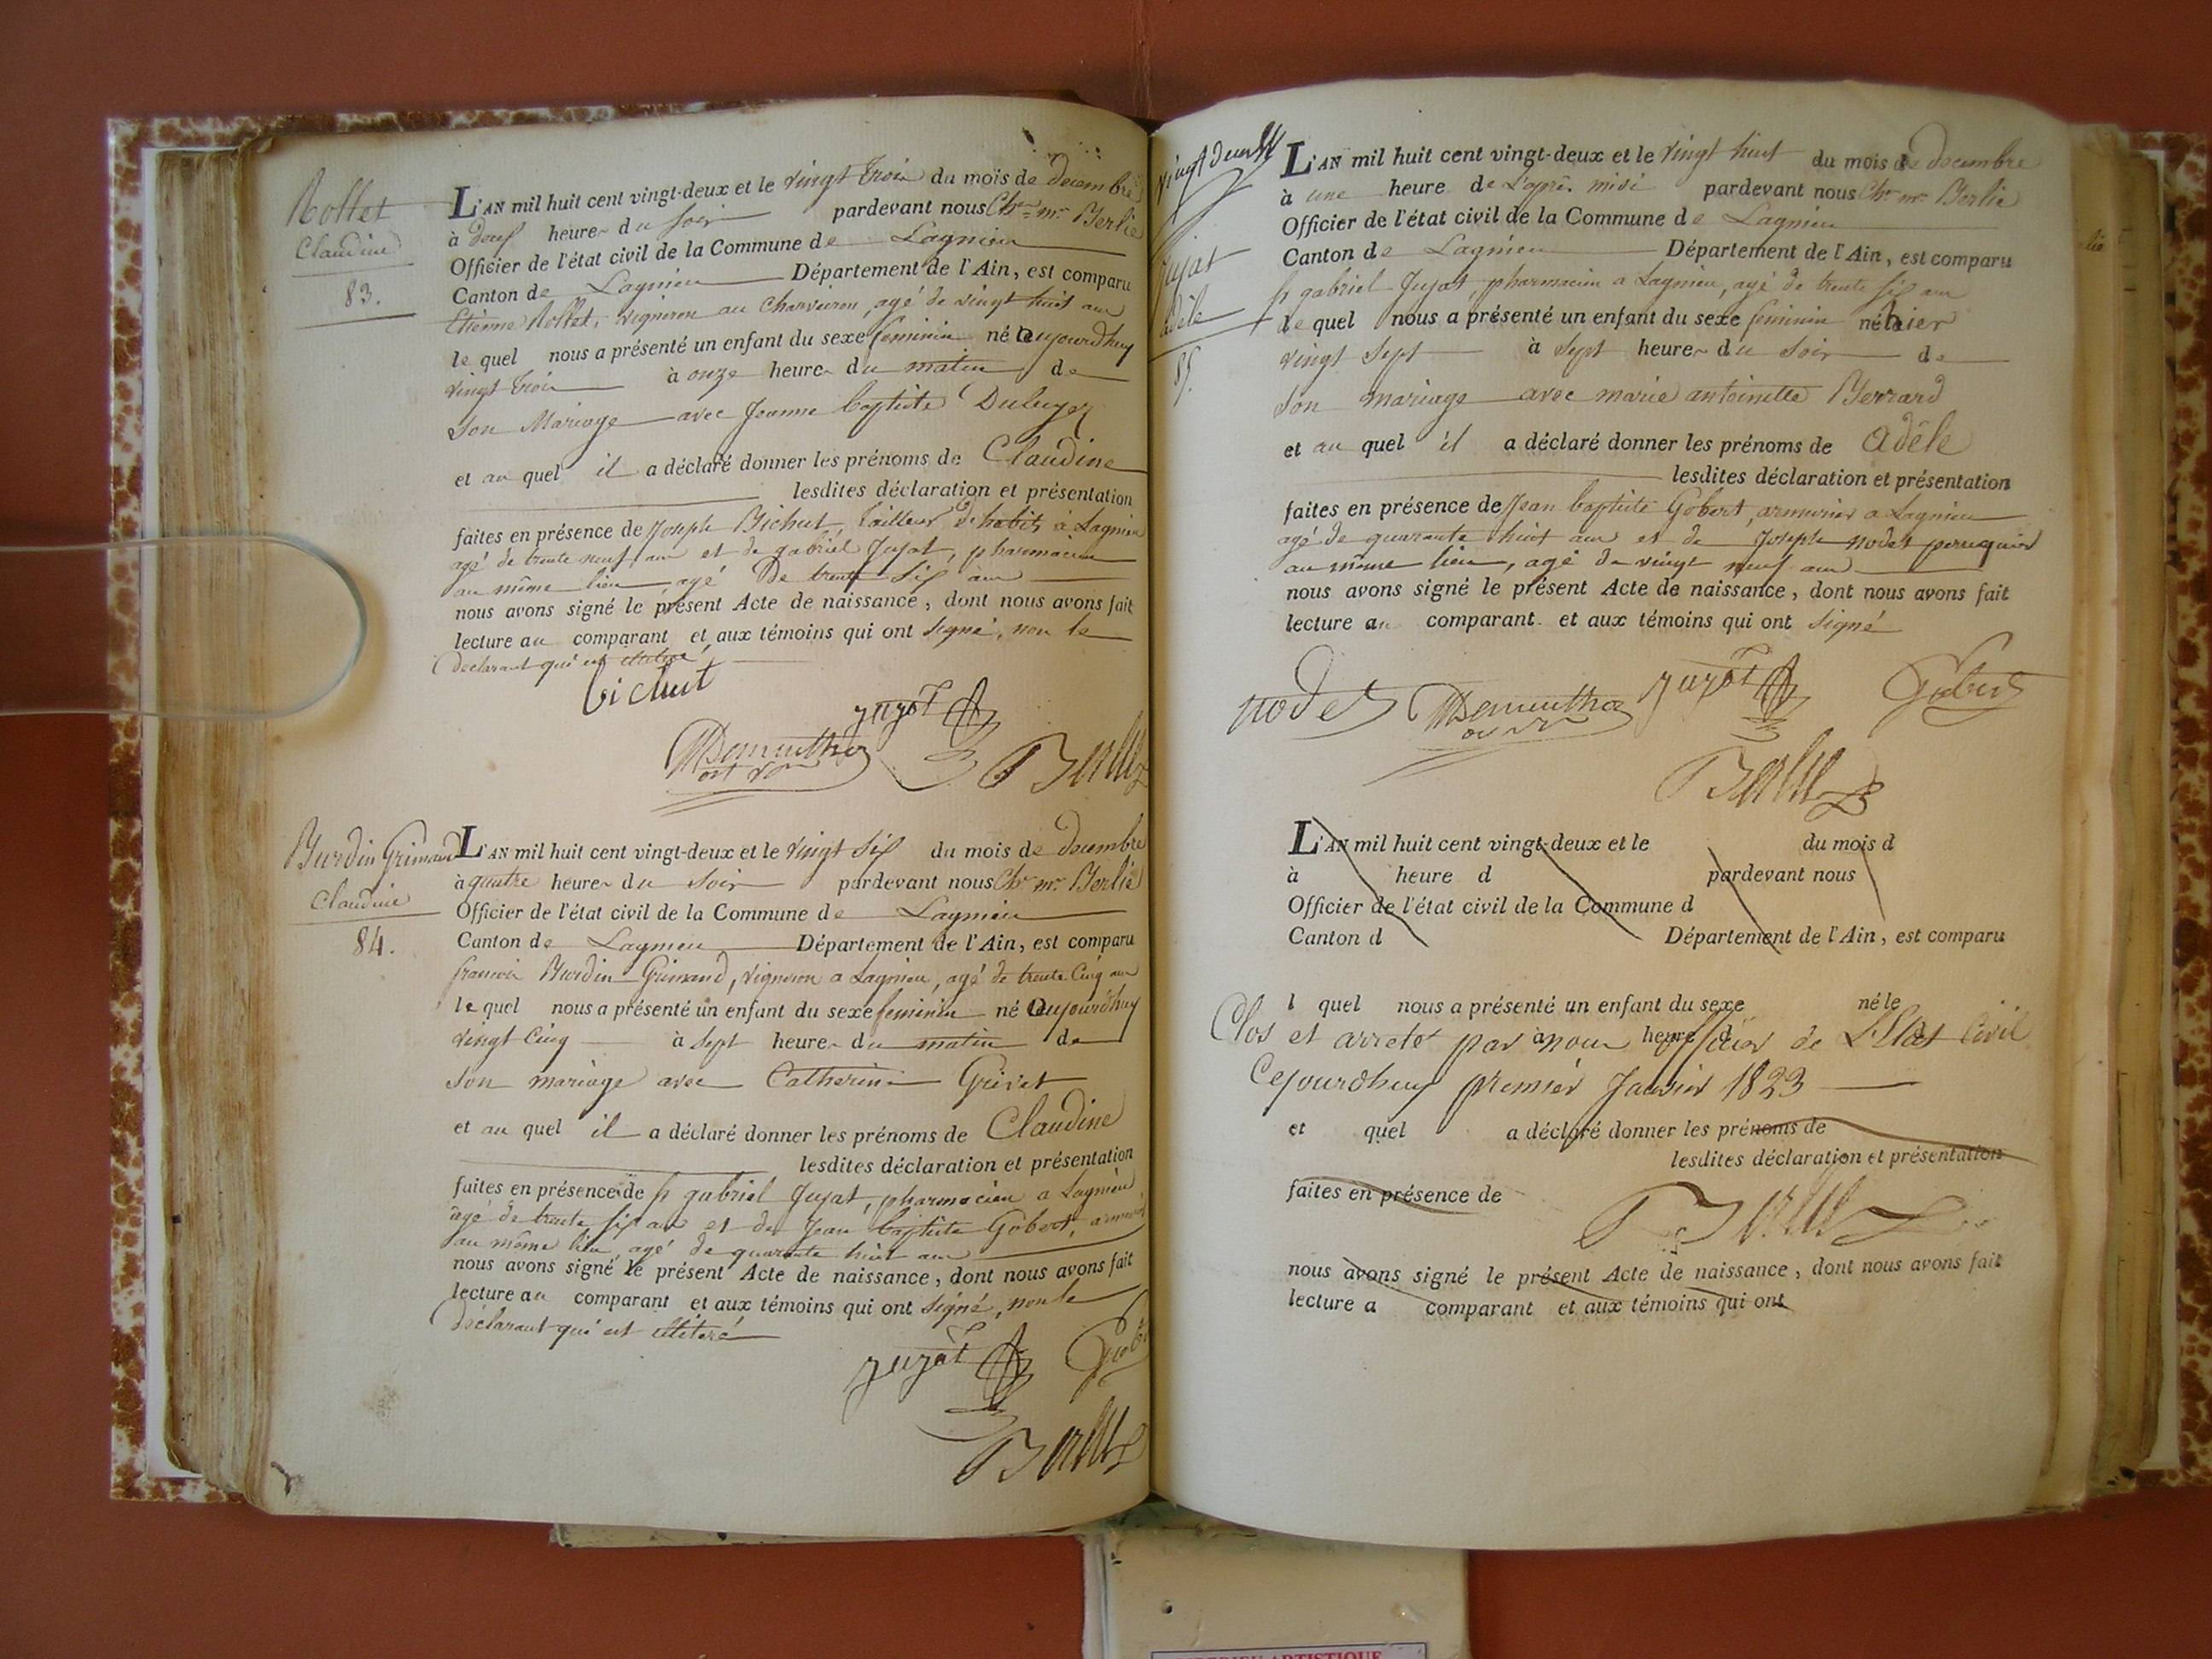 Rollet
Claudine
83.
L'AN mil huit cent vingt-deux et le vingt trois du mois de decembre
à deux heures du soir pardevant nous Chr. mr. Berlie
Officier de l'état civil de la Commune de Lagnieu
Canton de Lagnieu Département de l'Ain, est comparu
Etienne Rollet, vigneron au Charveiron, agé de vingt huit ans
le quel nous a présenté un enfant du sexe feminin né aujourdhuy
vingt trois à onze heures du matin de
son Mariage avec Jeanne baptiste
et au quel il a déclaré donner les prénoms de Claudine
lesdites déclaration et présentation
faites en présence de Joseph Bichut, tailleur d'habits à Lagnieu
agé de trente neuf ans et de gabriel Jujat, pharmacien
au même lieu, agé De trente six ans
nous avons signé le présent Acte de naissance, dont nous avons fait
lecture au comparant et aux témoins qui ont signé, non le
declarant qui est
bichut
jujat
Berlie
Burdin Grimaud
Claudine
84.
L'AN mil huit cent vingt-deux et le vingt six du mois de decembre
à quatre heures du soir pardevant nous Chr. mr. Berlie
Officier de l'état civil de la Commune de Lagnieu
Canton de Lagnieu Département de l'Ain, est comparu
francois Burdin Grimaud, vigneron a Lagnieu, agé de trente cinq ans
le quel nous a présenté un enfant du sexe feminin né aujourdhuy
vingt cinq à sept heures du matin de
son mariage avec Catherine Grivet
et au quel il a déclaré donner les prénoms de Claudine
lesdites déclaration et présentation
faites en présence de sr gabriel Jujat, pharmacien a Lagnieu
agé de trente six ans et de Jean baptiste Gobert,
au même lieu, agé de quarante huit ans
nous avons signé le présent Acte de naissance, dont nous avons fait
lecture au comparant et aux témoins qui ont signé, non le
déclarant qui est
jujat
Berlie
vingt deux
Jujat
adèle
85.
L'AN mil huit cent vingt-deux et le vingt huit du mois de decembre
à une heure de l'après midi pardevant nous Chr. mr. Berlie
Officier de l'état civil de la Commune de Lagnieu
Canton de Lagnieu Département de l'Ain, est comparu
sr gabriel Jujat, pharmacien a Lagnieu, agé de trente six ans
le quel nous a présenté un enfant du sexe feminin né hier
vingt sept à sept heures du soir de
son mariage avec marie antoinette Berrard
et au quel il a déclaré donner les prénoms de adèle
lesdites déclaration et présentation
faites en présence de Jean baptiste Gobert, armurier a Lagnieu
agé de quarante huit ans et de Joseph nodet peruquier
au même lieu, agé de vingt neuf ans
nous avons signé le présent Acte de naissance, dont nous avons fait
lecture au comparant et aux témoins qui ont signé
nodet jujat Gobert
Berlie
L'AN mil huit cent vingt-deux et le du mois d
à heure d pardevant nous
Officier de l'état civil de la Commune d
Canton d Département de l'Ain, est comparu
l quel nous a présenté un enfant du sexe né le
à heure d d
Clos et arreté par nous officier de L'Etat Civil
Cejourdhuy premier Janvier 1823
et quel a déclaré donner les prénoms de
lesdites déclaration et présentation
faites en présence de
Berlie
nous avons signé le présent Acte de naissance, dont nous avons fait
lecture a comparant et aux témoins qui ont